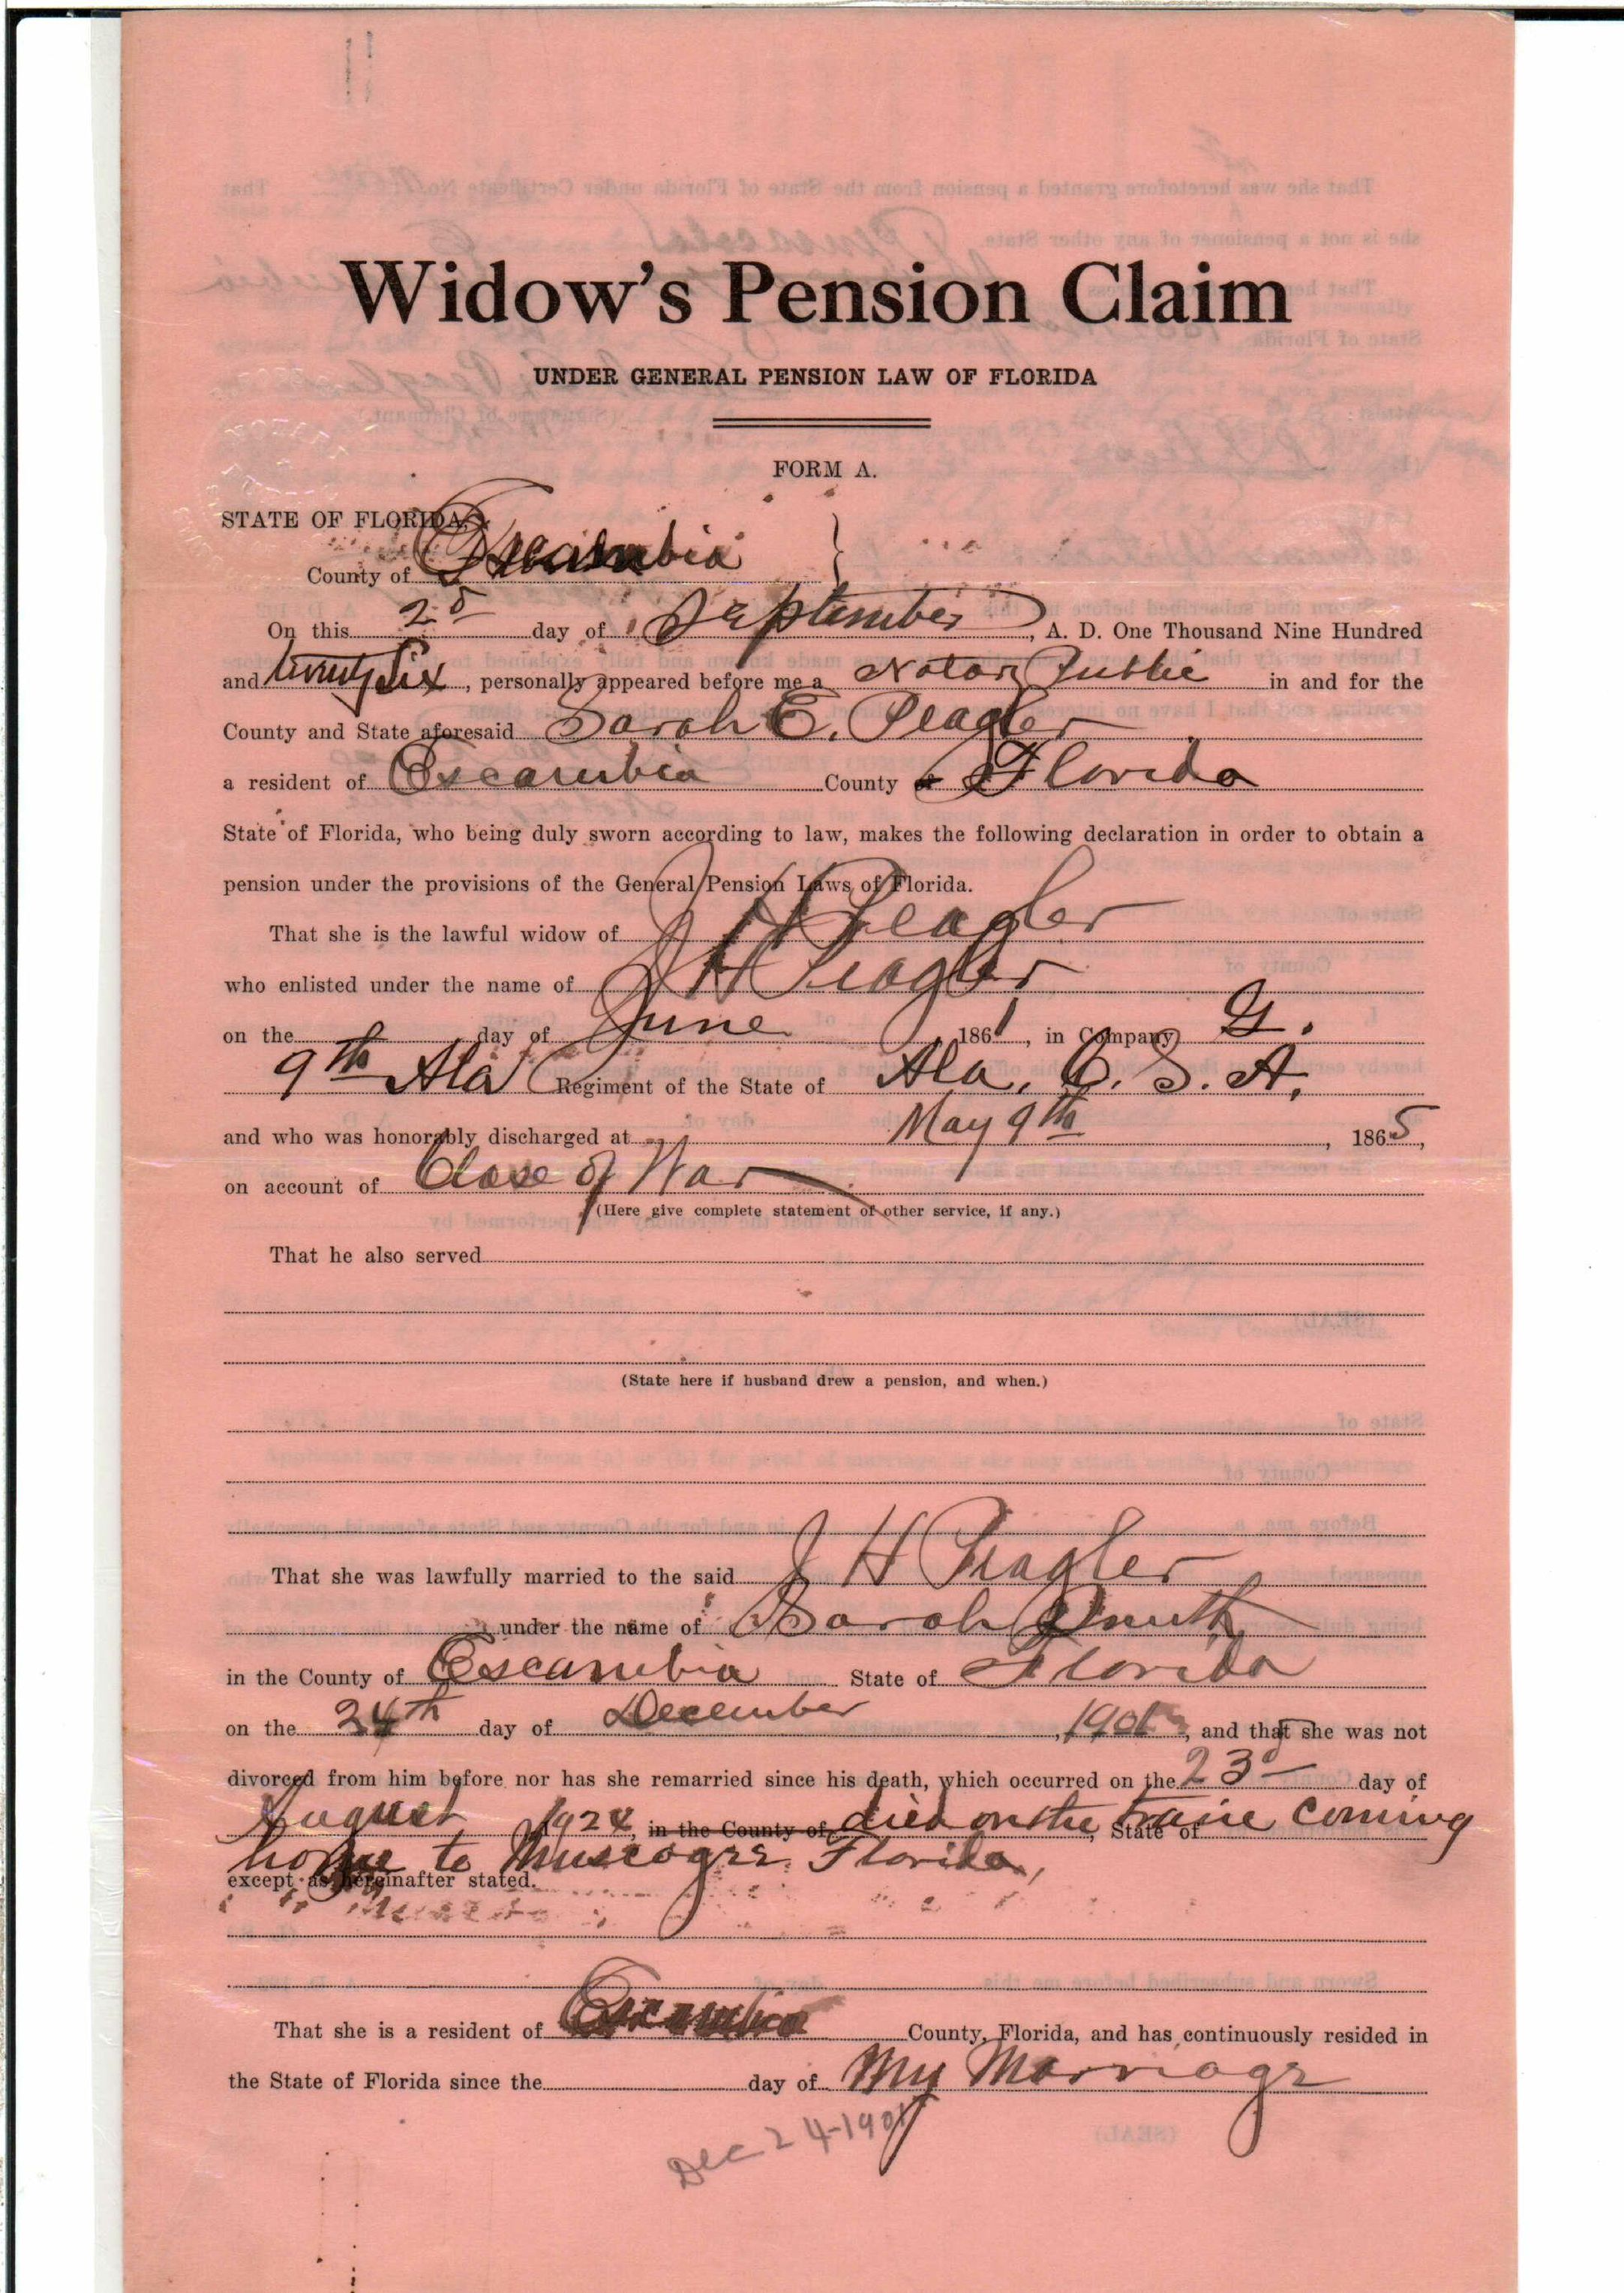 Widow's Pension Claim
UNDER GENERAL PENSION LAW OF FLORIDA
FORM A.
STATE OF FLORIDA,
County of Escambia
On this 2d day of September, A. D. One Thousand Nine Hundred
and twenty Six, personally appeared before me a Notary Public in and for the
County and State aforesaid Sarah E. Peagler
a resident of Escambia County of Florida
State of Florida, who being duly sworn according to law, makes the following declaration in order to obtain a
pension under the provisions of the General Pension Laws of Florida.
That she is the lawful widow of J H Peagler
who enlisted under the name of J H Peagler
on the day of June, 1861, in Company G.
9th Ala Regiment of the State of Ala. C. S. A.
and who was honorably discharged at May 9th, 1865,
on account of Close of War
(Here give complete statement of other service, if any.)
That he also served
(State here if husband drew a pension, and when.)
That she was lawfully married to the said J H Peagler
under the name of Sarah Smith
in the County of Escambia State of Florida
on the 24th day of December, 1901, and that she was not
divorced from him before nor has she remarried since his death, which occurred on the 23d day of
August 1924, in the County of died on the, State of train coming
home to Muscogee Florida,
except as hereinafter stated.
That she is a resident of Escambia County, Florida, and has continuously resided in
the State of Florida since the day of My Marriage
Dec 24-1901